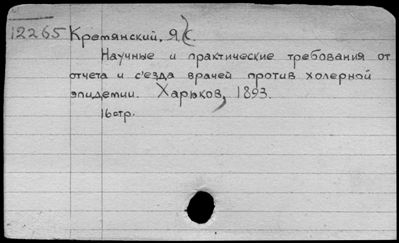 12265 Кремянский, Я.С.
Научные и практические требования от
отчета и с'езда врачей против холерной
эпидемии. Харюков, 1893.
16стр.